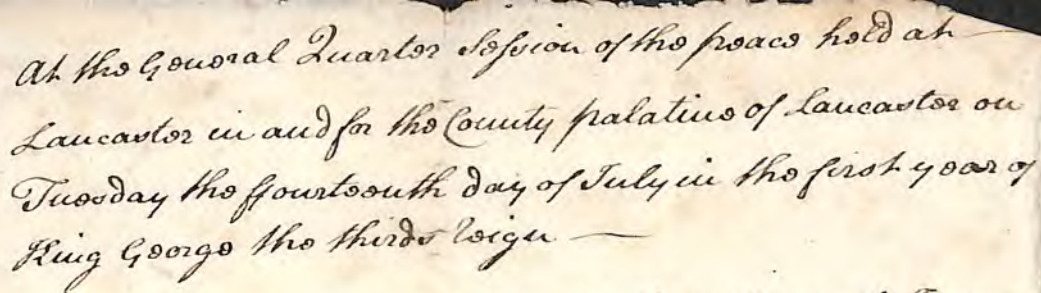 At the General Quarter Session of the peace held at
Lancaster in and for the County palatine of Lancaster on
Tuesday the ffourteenth day of July in the first year of
King George the thirds reign